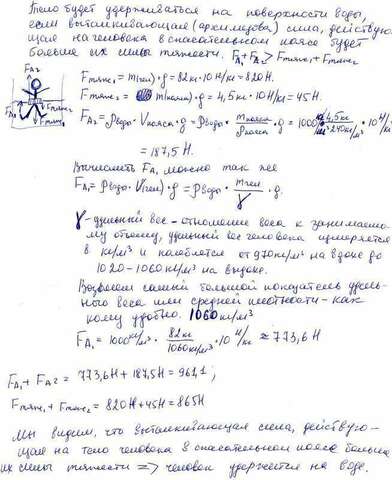 Тело будет удерживаться на поверхности воды,
если выталкивающая (архимедова) сила, действую-
щая на человека в спасательном поясе будет
больше их силы тяжести. FA₁ + FA₂ > Fтяж₁ + Fтяж₂
FA₂
Fтяж₁ = m(чел) · g = 82 кг · 10 Н/кг = 820 Н.
Fтяж₂ = m(пояса) · g = 4,5 кг · 10 Н/кг = 45 Н.
FA₁ Fтяж₂
Fтяж₁
FA₂ = ρводы · Vпояса · g = ρводы · mпояса/ρпояса · g = 1000 кг/м³ · 4,5 кг/240 кг/м³ · 10 Н/кг
= 187,5 Н.
Вычислить FA₁ можно так же
FA₁ = ρводы · V(чел) · g = ρводы · mчел/γ · g.
γ - удельный вес - отношение веса к занимаемо-
му объему, удельный вес человека измеряется
в кг/м³ и колеблется от 970 кг/м³ на вдохе до
1020-1060 кг/м³ на выдохе.
Возьмем самый большой показатель удель-
ного веса или средней плотности - как
кому удобно. 1060 кг/м³
FA₁ = 1000 кг/м³ · 82 кг/1060 кг/м³ · 10 Н/кг ≈ 773,6 Н
FA₁ + FA₂ = 773,6 Н + 187,5 Н = 961,1 ;
Fтяж₁ + Fтяж₂ = 820 Н + 45 Н = 865 Н
Мы видим, что выталкивающая сила, действую-
щая на тело человека в спасательном поясе больше
их силы тяжести => человек удержется на воде.